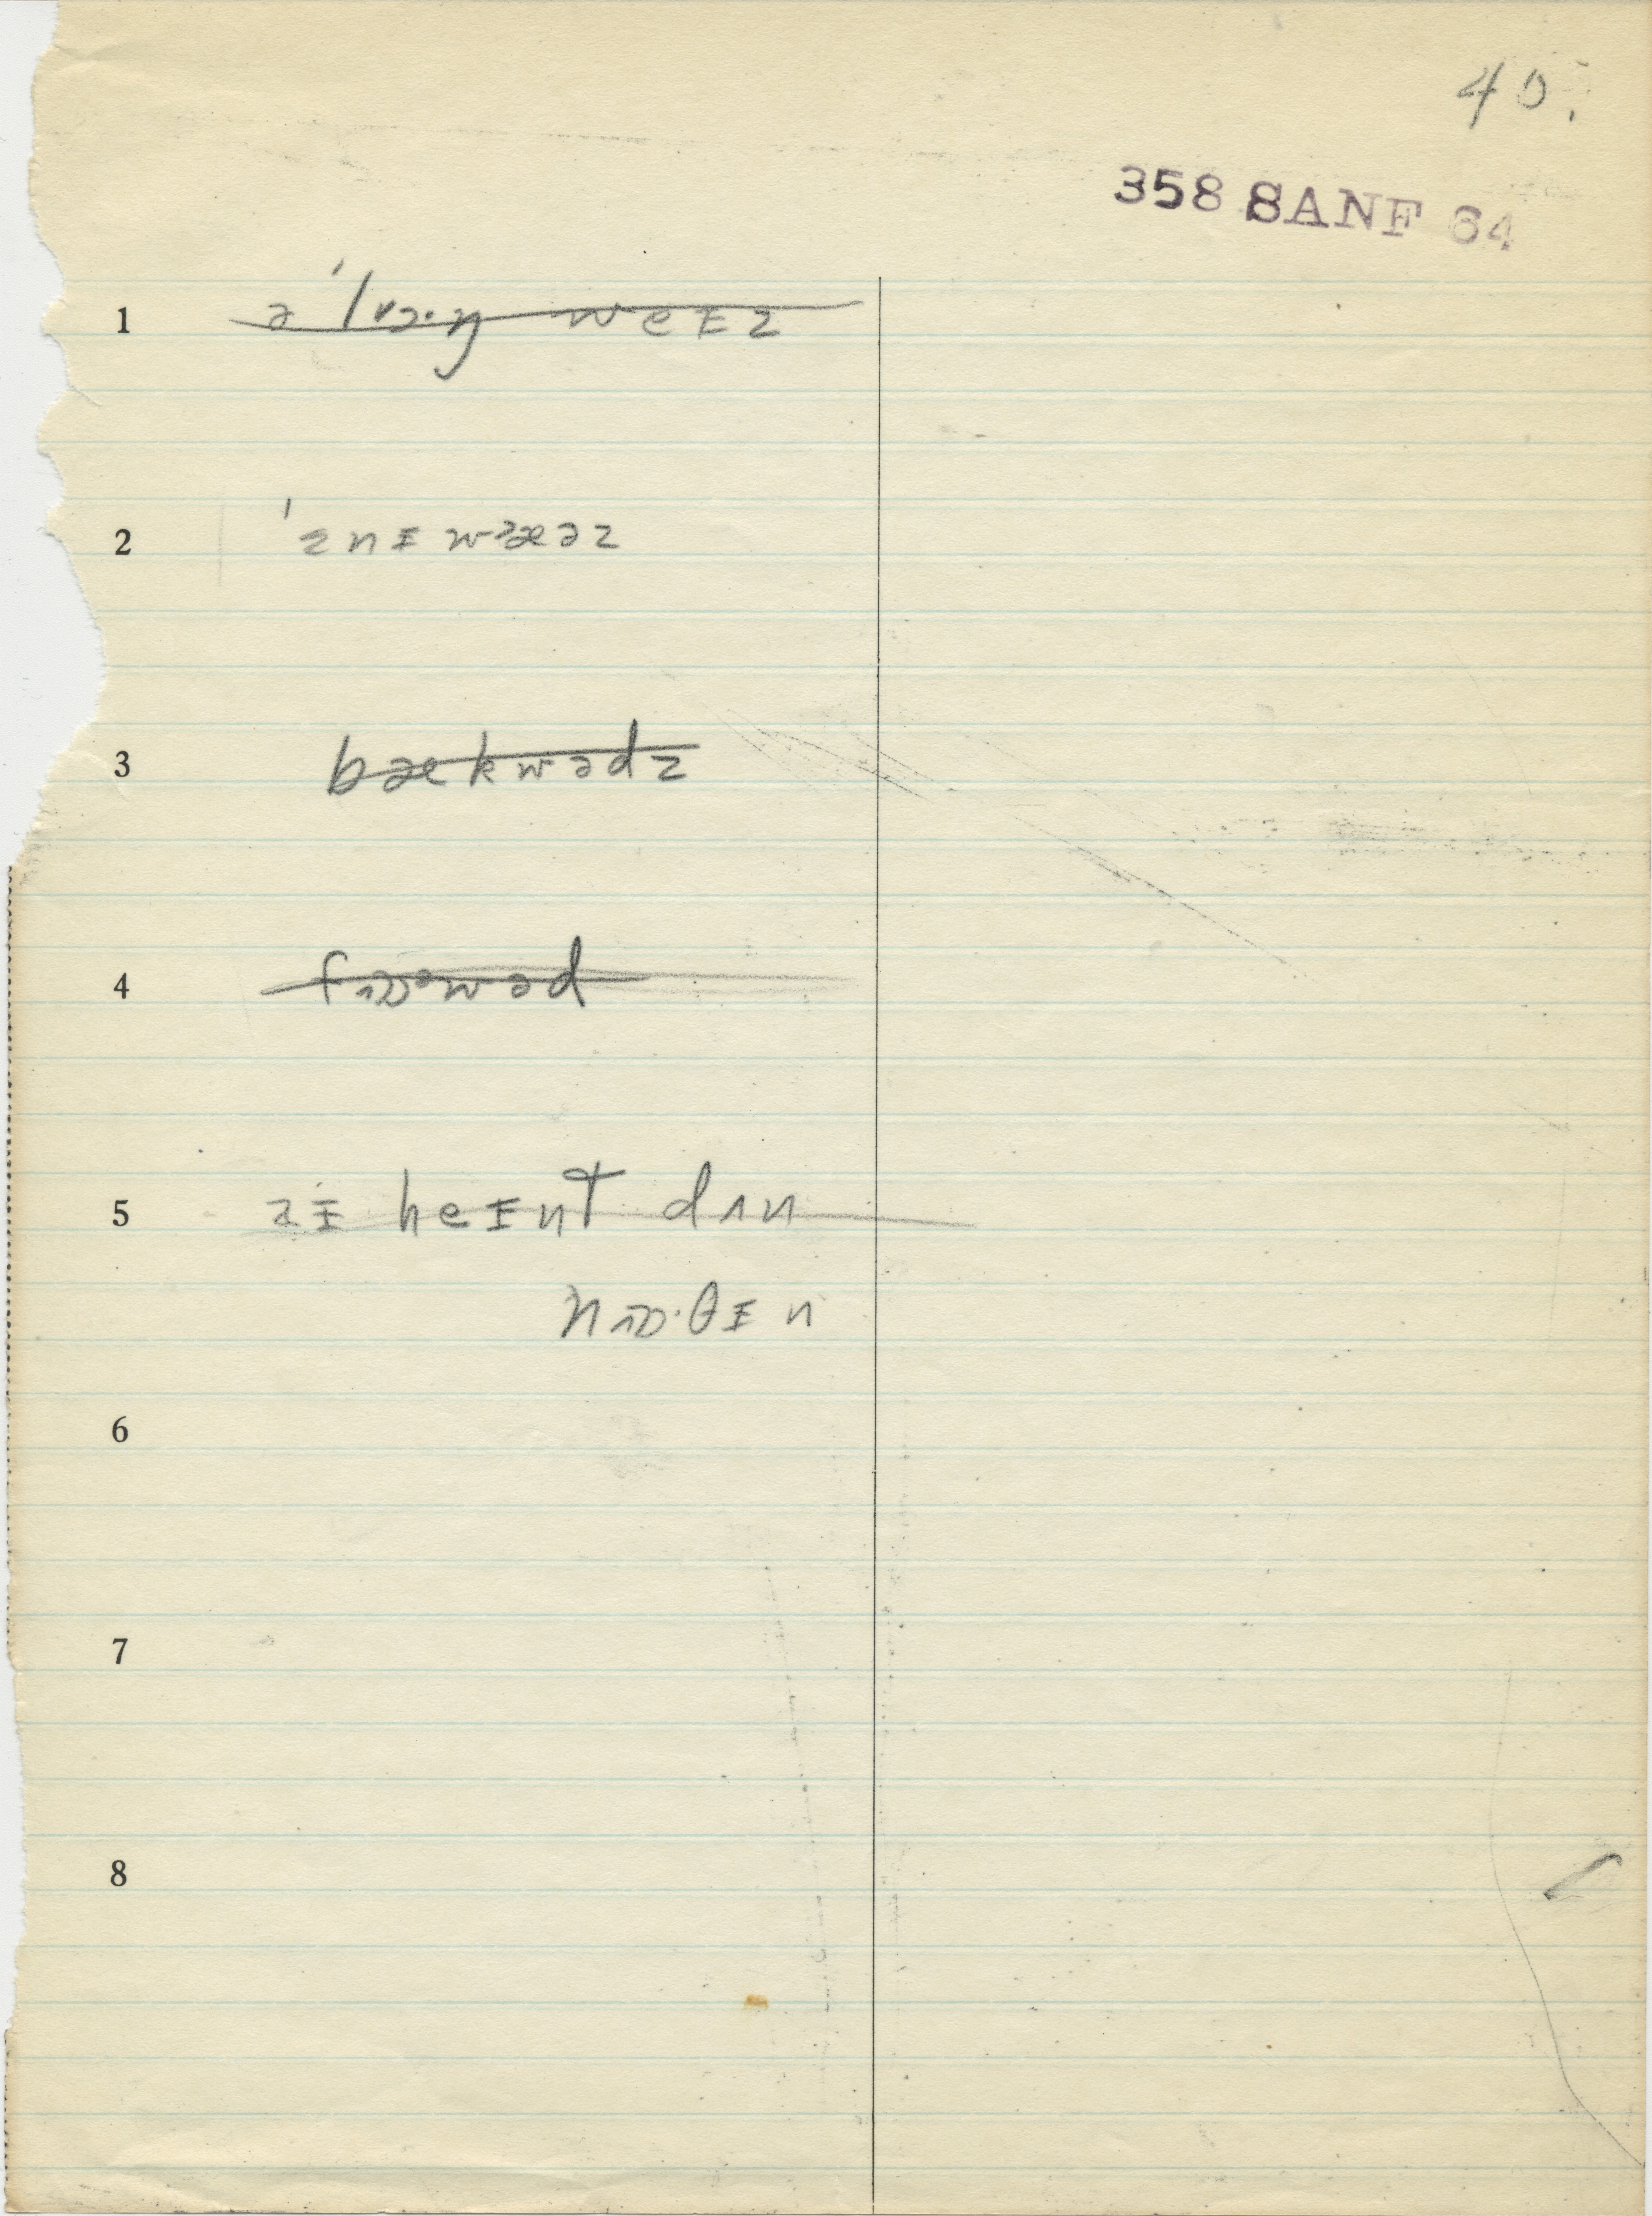 40.
358 SANF 64
1 ə'lɒɔ·ŋ weɪz
2 'ɛnɪwæəz
3 bækwədz
4 fɒəwəd
5 aɪ heɪnt dʌn
nʌɒ·θɪn
6
7
8